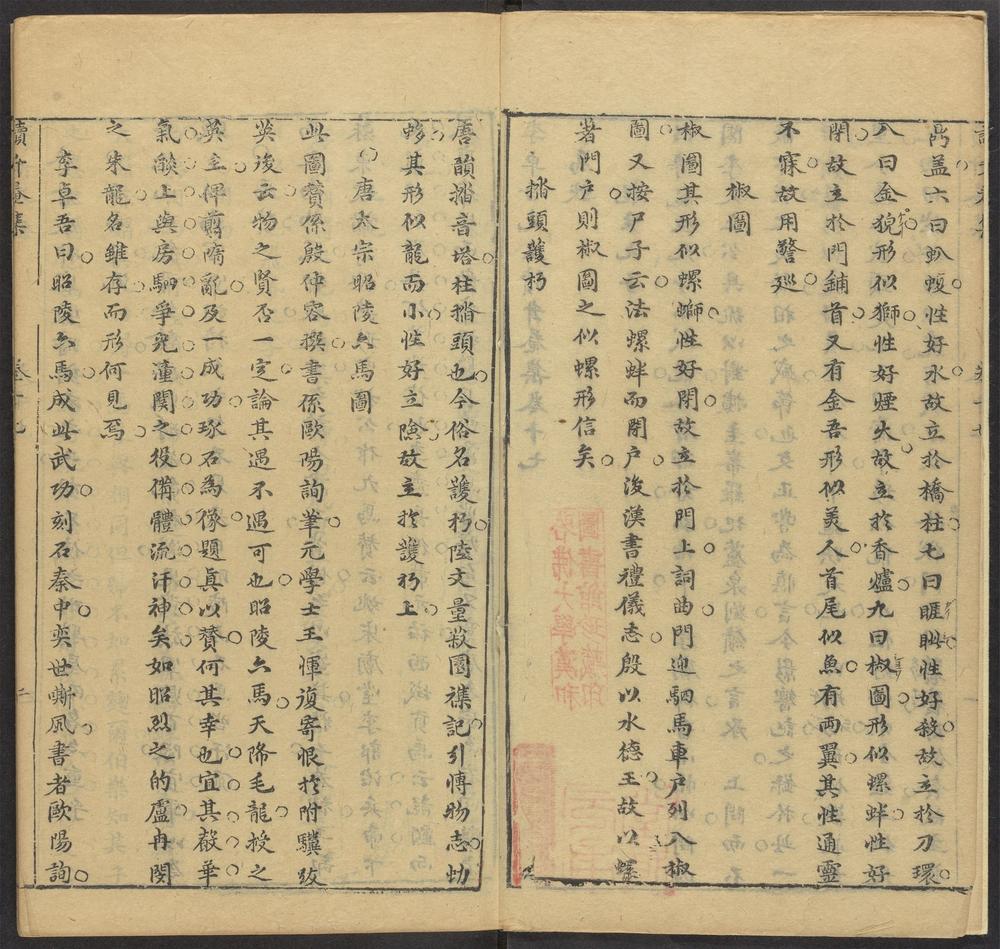 鼎盖六曰𧈢𧏡性好水故立於橋柱七曰睚眦性好殺故立於刀環
八曰金猊形似獅性好煙火故立於香爐九曰椒圖形似螺蚌性好
閉故立於門鋪首又有金吾形似美人首尾似魚有兩翼其性通靈
不寐故用警廵
椒圖
椒圖其形似螺螄性好閉故立於門上詞曲門迎駟馬車戶列八椒
圖又按尸子云法螺蚌而閉戶後漢書禮儀志殷以水德王故以螺
著門戶則椒圖之似螺形信矣
㳫頭護朽
唐韻㳫音塔柱㳫頭也今俗名護朽陸文量菽園襍記引愽物志
蛥其形似龍而小性好立險故主於護朽上
唐太宗昭陵六馬圖
此圖賛係殷仲容撰書係歐陽詢筆元學士王惲復寄恨於附驥攷
英後云物之賢否一定論其遇不遇可也昭陵六馬天降毛龍授之
英主俾剪隋亂及一成功琢石為像題真以賛何其幸也宜其聲華
氣燄上與房駟爭光潼関之役備體流汗神矣如昭烈之的盧冉閔
之朱龍名雖存而形何見焉
李卓吾曰昭陵六馬成此武功刻石秦中奕世嘶風書者歐陽詢
讀升菴集
卷十七
二